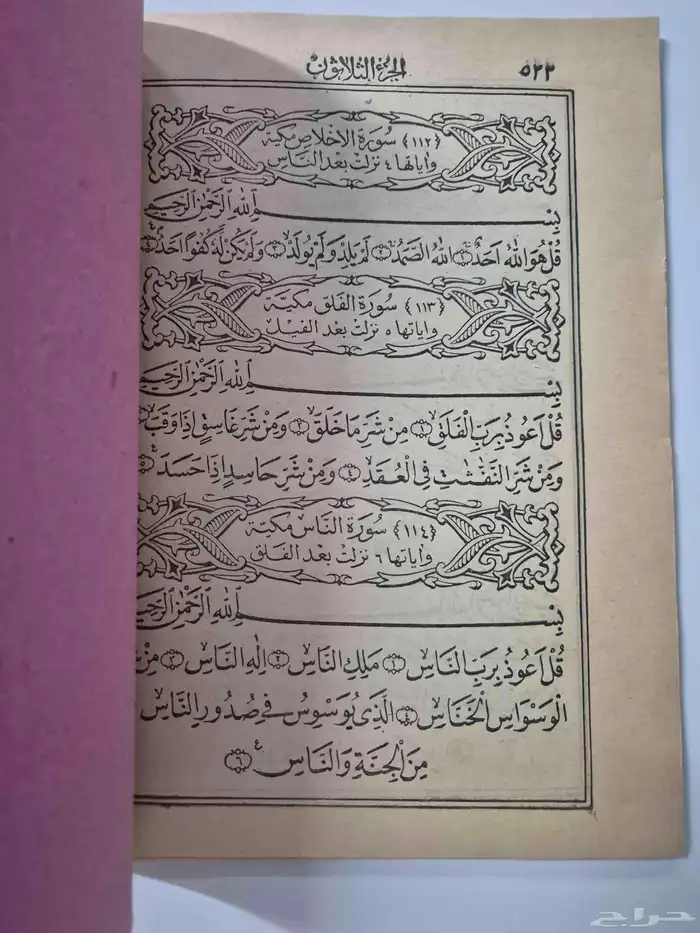 الجزء الثلاثون ٥٢٢
﴿١١٢﴾ سورة الاخلاص مكية
وآياتها ٤ نزلت بعد الناس
بِسْمِ اللهِ الرَّحْمٰنِ الرَّحِيمِ
قُلْ هُوَ اللهُ اَحَدٌ ۝١ اَللهُ الصَّمَدُ ۝٢ لَمْ يَلِدْ وَلَمْ يُولَدْ ۝٣ وَلَمْ يَكُنْ لَهُ كُفُوًا اَحَدٌ ۝٤
﴿١١٣﴾ سورة الفلق مكية
وآياتها ٥ نزلت بعد الفيل
بِسْمِ اللهِ الرَّحْمٰنِ الرَّحِيمِ
قُلْ اَعُوذُ بِرَبِّ الْفَلَقِ ۝١ مِنْ شَرِّ مَا خَلَقَ ۝٢ وَمِنْ شَرِّ غَاسِقٍ اِذَا وَقَبَ ۝٣
وَمِنْ شَرِّ النَّفّٰثٰتِ فِي الْعُقَدِ ۝٤ وَمِنْ شَرِّ حَاسِدٍ اِذَا حَسَدَ ۝٥
﴿١١٤﴾ سورة الناس مكية
وآياتها ٦ نزلت بعد الفلق
بِسْمِ اللهِ الرَّحْمٰنِ الرَّحِيمِ
قُلْ اَعُوذُ بِرَبِّ النَّاسِ ۝١ مَلِكِ النَّاسِ ۝٢ اِلٰهِ النَّاسِ ۝٣ مِنْ
الْوَسْوَاسِ الْخَنَّاسِ ۝٤ الَّذِي يُوَسْوِسُ فِي صُدُورِ النَّاسِ
مِنَ الْجِنَّةِ وَالنَّاسِ ۝٦
حراج